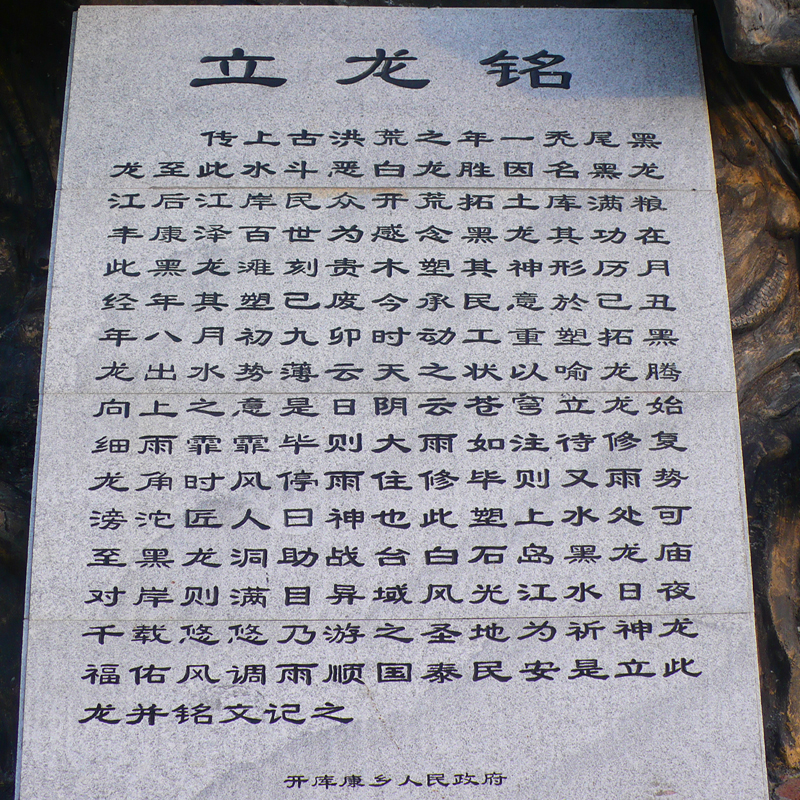 立龙铭
传上古洪荒之年一秃尾黑
龙至此水斗恶白龙胜因名黑龙
江后江岸民众开荒拓土库满粮
丰康泽百世为感念黑龙其功在
此黑龙滩刻贵木塑其神形历月
经年其塑已废今承民意於己丑
年八月初九卯时动工重塑拓黑
龙出水势薄云天之状以喻龙腾
向上之意是日阴云苍穹立龙始
细雨霏霏毕则大雨如注待修复
龙角时风停雨住修毕则又雨势
滂沱匠人曰神也此塑上水处可
至黑龙洞助战台白石岛黑龙庙
对岸则满目异域风光江水日夜
千载悠悠乃游之圣地为祈神龙
福佑风调雨顺国泰民安是立此
龙并铭文记之
开库康乡人民政府